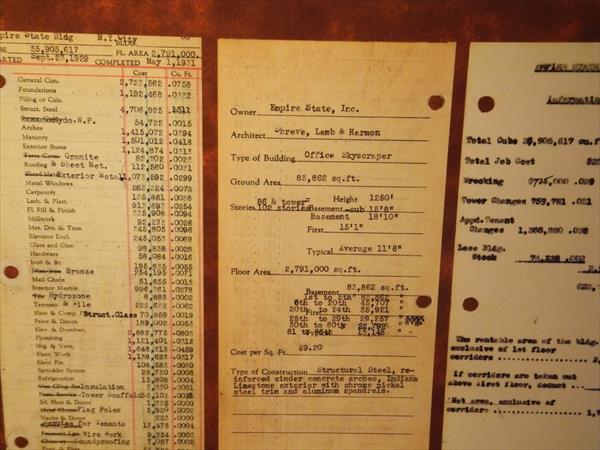 pire State Bldg N.Y.City
BE 35,905,617 FL. AREA 2,791,000.
ARTED Sept.24,1929 COMPLETED May 1,1931
Cost Cu. Ft.
General Con. 2,723,562 .0758
Foundations 1,192,468 .0332
Piling or Cais.
Struct. Steel 4,706,925 .1311
Hydo.W.P. 54,722 .0015
Arches 1,415,072 .0394
Masonry 1,501,012 .0418
Exterior Stone 1,124,874 .0313
Granite 82,202 .0023
Roofing & Sheet Met. 112,580 .0031
Exterior Metal 1,073,592 .0299
Metal Windows 262,324 .0073
Carpentry 135,861 .0038
Lath. & Plast. 913,693 .0254
Fl. Fill & Finish 335,908 .0094
Millwork 92,273 .0026
Met. Drs. & Trim 345,805 .0096
Elevator Encl. 245,053 .0069
Glass and Glaz. 98,338 .0028
Hardware 58,084 .0016
Iron & Br. 195,835 .0055
Bronze 254,195 .0071
Mail Chute 51,655 .0015
Interior Marble 996,361 .0278
Hydrozone 8,885 .0002
Terrazzo & Tile 222,632 .0062
Struct.Glass 70,959 .0019
Paint & Decor. 189,002 .0053
Elev. & Dumbws. 2,882,775 .0803
Plumbing
Htg. & Vent.
Elect. Work
Elec. Fix.
Sprinkler System
Refrigeration 15,808 .0004
Insulation
Tower Scaffold
Sid. Shed & Doors
Flag Poles 5,929 .0002
Vaults & Doors
for Tenants 13,478 .0004
Wire Work 9,254
Soundproofing 7,087 .0002
Owner Empire State, Inc.
Architect Shreve, Lamb & Harmon
Type of Building Office Skyscraper
Ground Area 83,862 sq.ft.
86 & tower Height 1250'
Stories 102 stories Basement-sub 15'8"
Basement 18'10"
First 15'1"
Typical Average 11'6"
Floor Area 2,791,000 sq.ft.
Basement 83,862 sq.ft.
1st to 5th 83,862 "
6th to 20th 45,707 "
20th to 24th 35,921 "
25th to 29th 29,257 "
30th to 80th 22,792 "
81 to 85th 13,145 "
Cost per Sq. Ft. $9.20
Type of Construction Structural Steel, re-
inforced cinder concrete arches, Indiana
Limestone exterior with chrome nickel
steel trim and aluminum spandrels.
EMPIRE STATE
Informatio
Total Cube 35,905,617 cu.f
Total Job Cost $2
Wrecking $735,000 .029
Tower Changes 759,781 .021
Appd.Tenant
Changes 1,366,890 .038
Less Bldg.
Stock 74,238 .002
The rentable area of the bldg.
exclusive of 1st floor
corridors
If corridors are taken out
above first floor, deduct
Net area, exclusive of
corridors